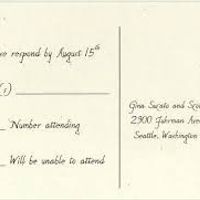 se respond by August 15th
(s)
Number attending
Will be unable to attend
Gina Sarato and Sco
2900 Fuhrman Ave
Seattle, Washington